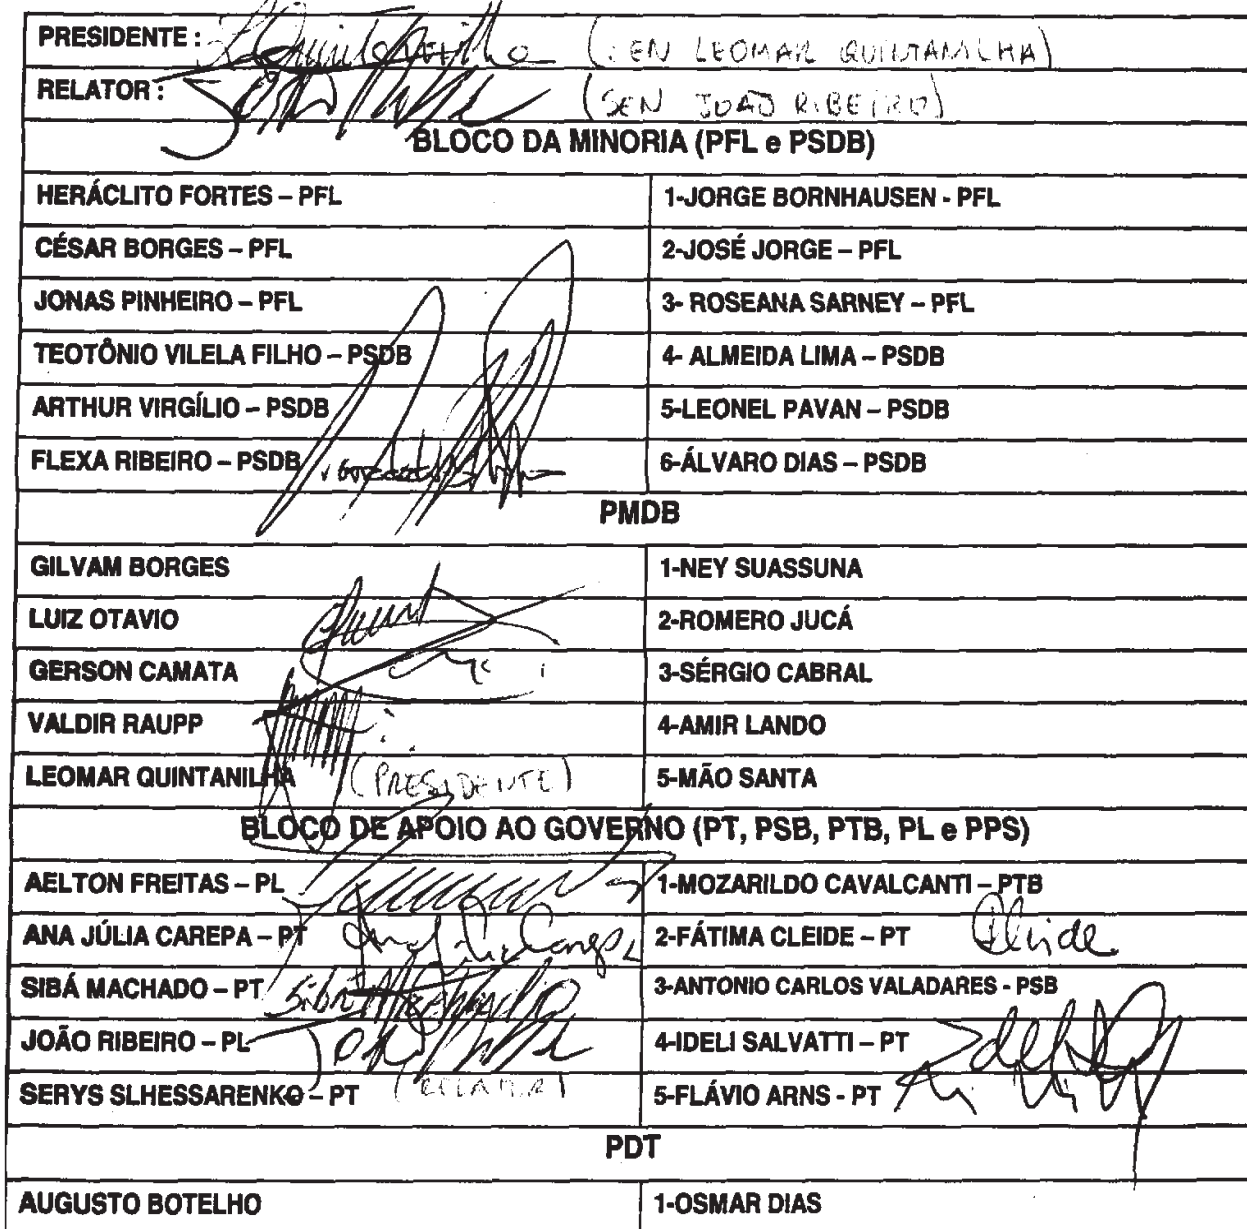 PRESIDENTE: (SEN LEOMAR QUINTANILHA)
RELATOR: (SEN JOÃO RIBEIRO)
BLOCO DA MINORIA (PFL e PSDB)
HERÁCLITO FORTES – PFL 1-JORGE BORNHAUSEN - PFL
CÉSAR BORGES – PFL 2-JOSÉ JORGE – PFL
JONAS PINHEIRO – PFL 3- ROSEANA SARNEY – PFL
TEOTÔNIO VILELA FILHO – PSDB 4- ALMEIDA LIMA – PSDB
ARTHUR VIRGÍLIO – PSDB 5-LEONEL PAVAN – PSDB
FLEXA RIBEIRO – PSDB 6-ÁLVARO DIAS – PSDB
PMDB
GILVAM BORGES 1-NEY SUASSUNA
LUIZ OTAVIO 2-ROMERO JUCÁ
GERSON CAMATA 3-SÉRGIO CABRAL
VALDIR RAUPP 4-AMIR LANDO
LEOMAR QUINTANILHA (PRESIDENTE) 5-MÃO SANTA
BLOCO DE APOIO AO GOVERNO (PT, PSB, PTB, PL e PPS)
AELTON FREITAS – PL 1-MOZARILDO CAVALCANTI – PTB
ANA JÚLIA CAREPA – PT 2-FÁTIMA CLEIDE – PT Cleide
SIBÁ MACHADO – PT Sibá Machado 3-ANTONIO CARLOS VALADARES - PSB
JOÃO RIBEIRO – PL 4-IDELI SALVATTI – PT
SERYS SLHESSARENKO – PT (RELATOR) 5-FLÁVIO ARNS - PT
PDT
AUGUSTO BOTELHO 1-OSMAR DIAS